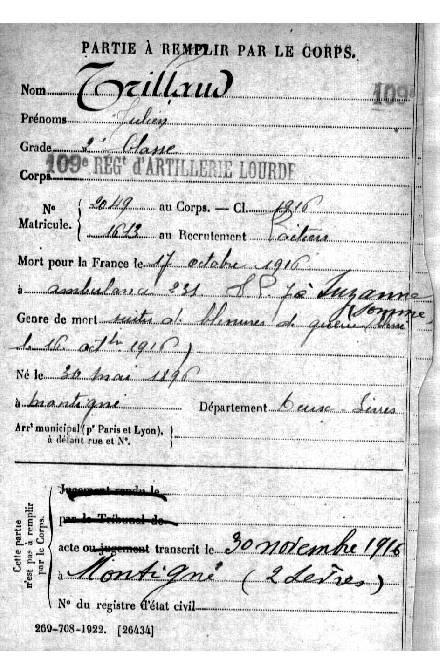 PARTIE À REMPLIR PAR LE CORPS.
Nom Trillaud
109e
Prénoms Julien
Grade 2e Classe
Corps 109e REGt d'ARTILLERIE LOURDE
No Matricule. 2049 au Corps. — Cl. 1916
1613 au Recrutement Poitiers
Mort pour la France le 17 octobre 1916
à ambulance 231 S.P. 7 à Suzanne
(Somme)
Genre de mort suites de blessures de guerre
le 16 octbre 1916)
Né le 30 mai 1896
à Montigné Département Deux-Sèvres
Arrt municipal (pr Paris et Lyon),
à défaut rue et No.
Cette partie
n'est pas à remplir
par le Corps.
Jugement rendu le
par le Tribunal de
acte ou jugement transcrit le 30 novembre 1916
à Montigné (2 Sevres)
No du registre d'état civil
269-708-1922. [26434]